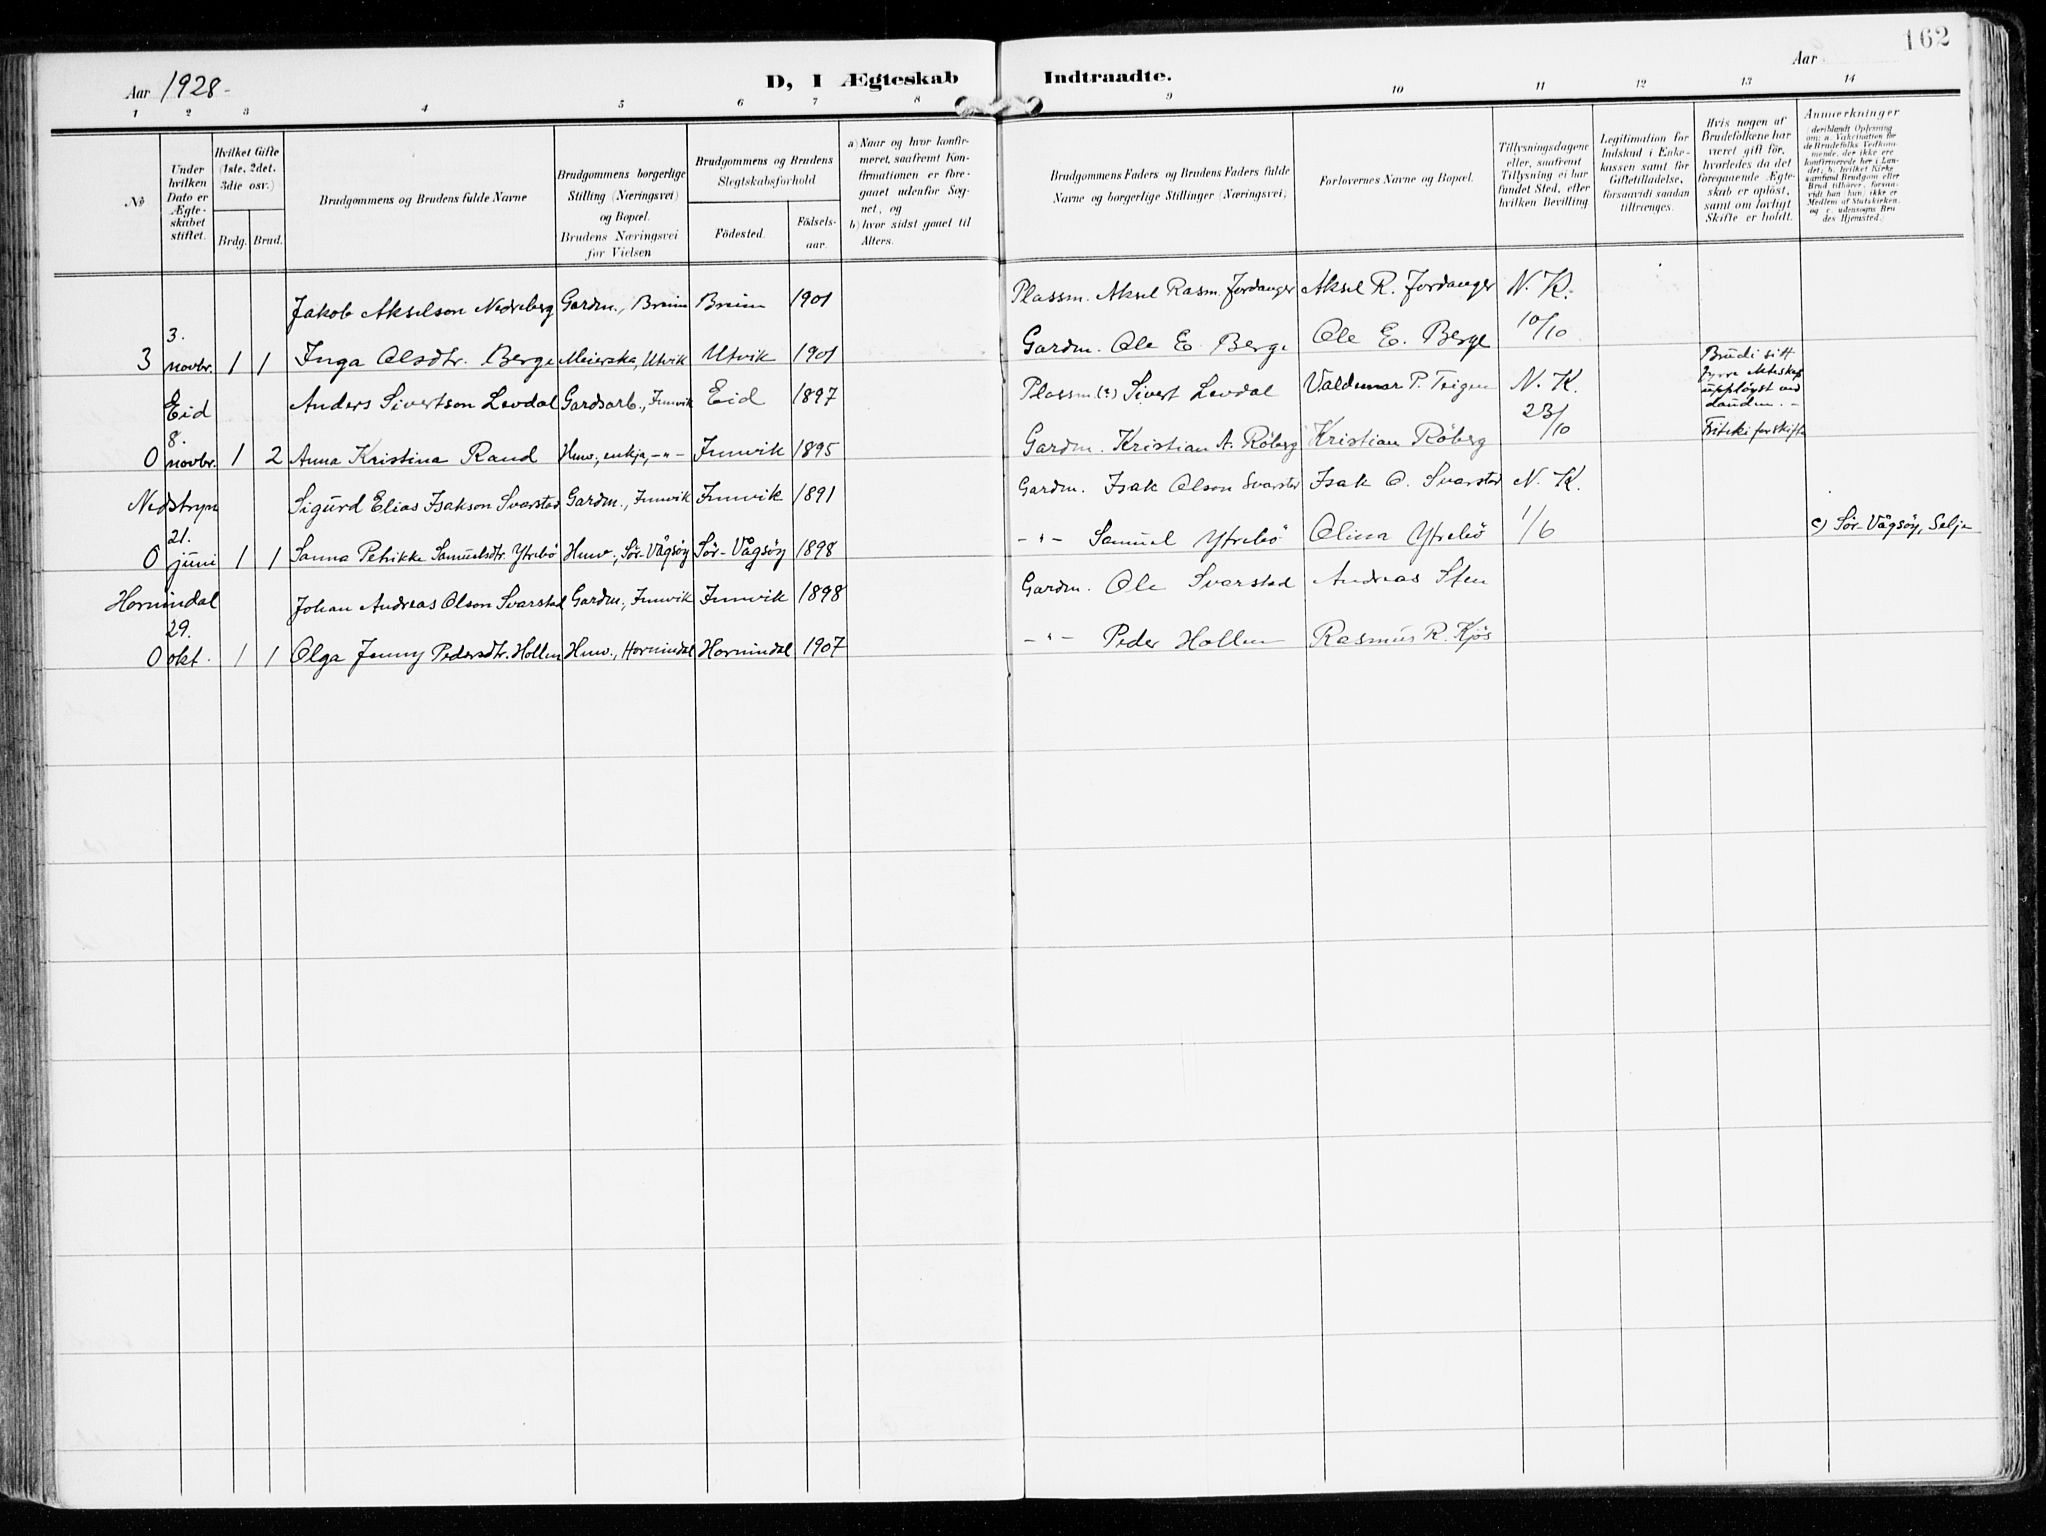 162
Aar 1928.
D, I Ægteskab Indtraadte.
Aar
1 2 3 4 5 6 7 8 9 10 11 12 13 14
No
Under hvilken Dato er Ægteskabet stiftet.
Hvilket Gifte (1ste, 2det, 3die osv.)
Brdg. Brud.
Brudgommens og Brudens fulde Navne
Brudgommens borgerlige Stilling (Næringsvei) og Bopæl.
Brudens Næringsvei før Vielsen
Brudgommens og Brudens Slegtskabsforhold
Födested.
Födselsaar.
a) Naar og hvor konfirmeret, saafremt Konfirmationen er foregaaet udenfor Sognet, og
b) hvor sidst gaaet til Alters.
Brudgommens Faders og Brudens Faders fulde Navne og borgerlige Stillinger (Næringsvei)
Forlovernes Navne og Bopæl.
Tillysningsdagene eller, saafremt Tillysning ei har fundet Sted, efter hvilken Bevilling
Legitimation for Indskud i Enkekassen samt for Giftetilladelse, forsaavidt saadan tiltrænges.
Hvis nogen af Brudefolkene har været gift før, hvorledes da det foregaaende Ægteskab er opløst, samt om lovligt Skifte er holdt.
Anmerkninger
(deriblandt Oplysning om: a. Vakcination for de Brudefolks Vedkommende, der ikke ere konfirmerede her i Landet; b. hvilket Kirkesamfund Brudgom eller Brud tilhører, forsaavidt han (hun) ikke er Medlem af Statskirken, og c. udensogns Brudes Hjemsted.)
Jakob Akselson Nedreberg Gardm., Breim Breim 1901 Plassm. Aksel Rasm. Fordanger Aksel R. Fordanger N. K.
3 3. novbr. 1 1 Inga Olsdtr. Berge Meierska, Utvik Utvik 1901 Gardm. Ole E. Berge Ole E. Berge 10/10
Eid Anders Sivertson Levdal Gardsarb., Innvik Eid 1897 Plassm. (?) Sivert Levdal Valdemar P. Teigen N. K. Brudi sitt fyrre ekteskap uppløyst ved dauden. -
0 8. novbr. 1 2 Anna Kristina Rand Husv., enkja, -"- Innvik 1895 Gardm. Kristian A. Röberg Kristian Röberg 23/10 Friteki for skifte
Nedstryn Sigurd Elias Isakson Svarstad Gardm., Innvik Innvik 1891 Gardm. Isak Olson Svarstad Isak O. Svarstad N. K.
0 21. juni 1 1 Sanna Petrikke Samuelsdtr. Ytrebö Husv., Sør-Vågsöy Sør-Vågsöy 1898 -"- Samuel Ytrebö Olina Ytrebö 1/6 c) Sør-Vågsöy, Selje
Hornindal Johan Andreas Olson Svarstad Gardm., Innvik Innvik 1898 Gardm. Ole Svarstad Andreas Sten
0 29. okt. 1 1 Olga Jenny Pedersdtr. Hollen Husv., Hornindal Hornindal 1907 -"- Peder Hollen Rasmus R. Kjös